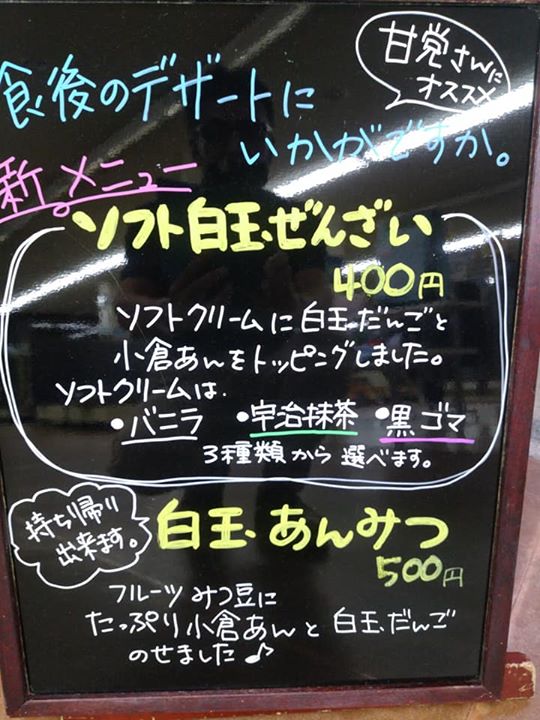 甘党さんに
オススメ
食後のデザートに
いかがですか。
新メニュー
ソフト白玉ぜんざい
400円
ソフトクリームに白玉だんごと
小倉あんをトッピングしました。
ソフトクリームは
•バニラ •宇治抹茶 •黒ゴマ
3種類から選べます。
持ち帰り
出来ます。
白玉あんみつ
500円
フルーツみつ豆に
たっぷり小倉あんと白玉だんご
のせました♪